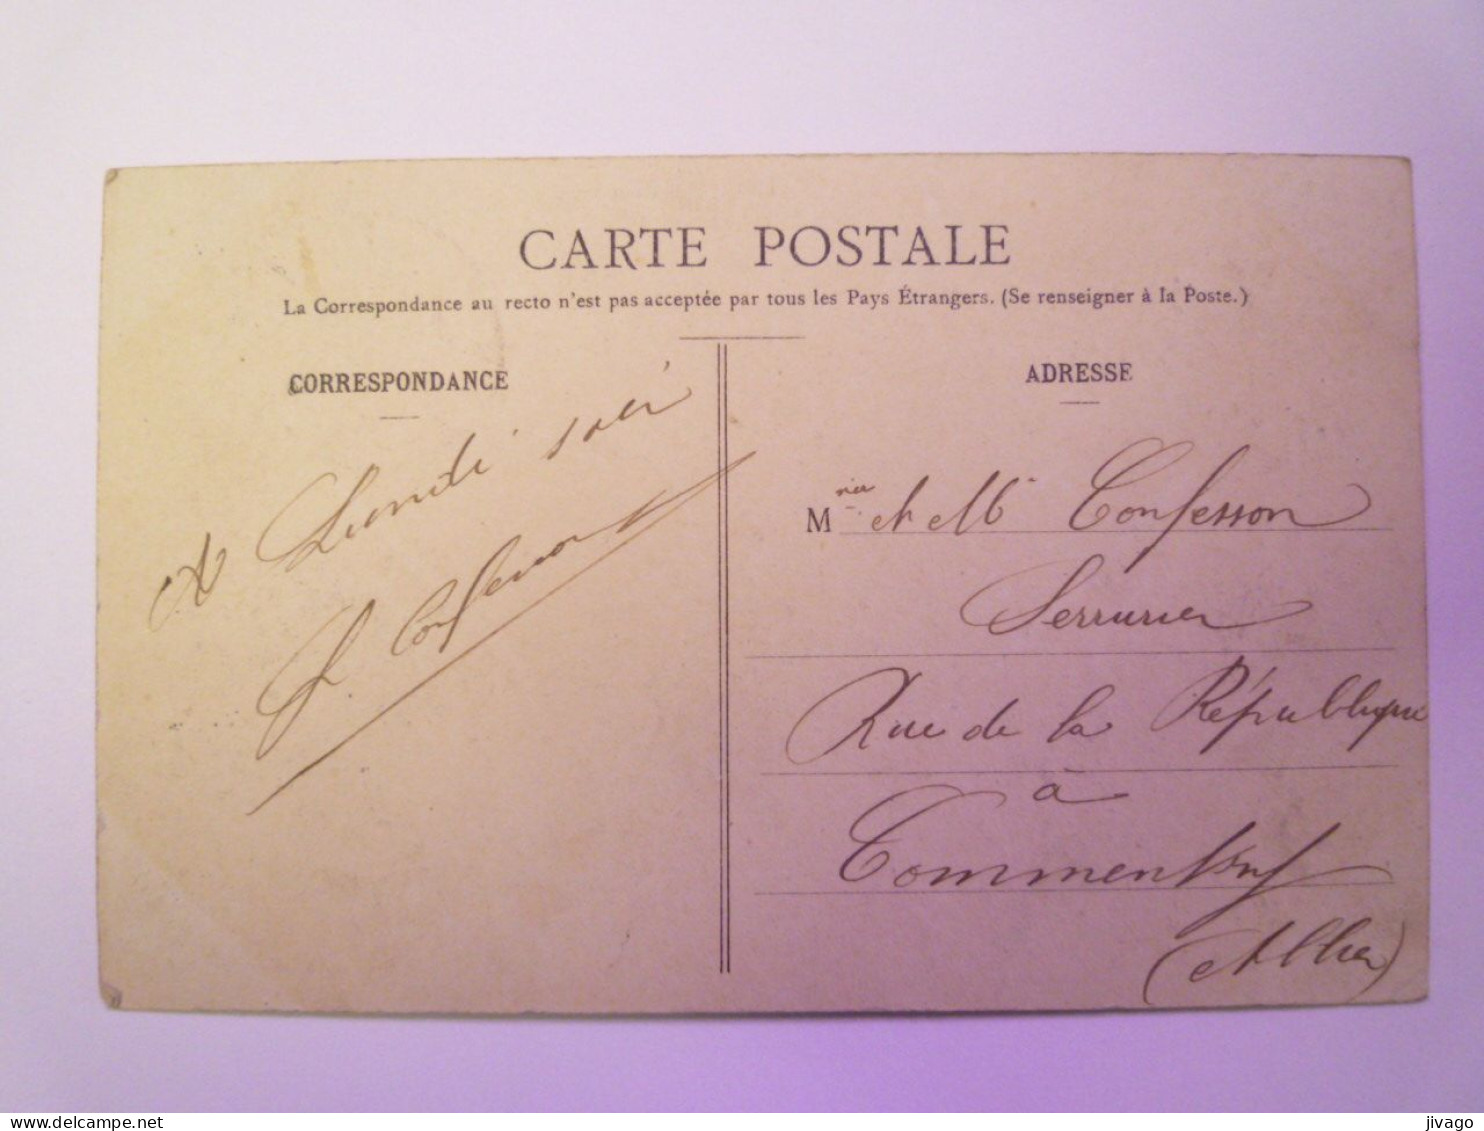 CARTE POSTALE
La Correspondance au recto n'est pas acceptée par tous les Pays Étrangers. (Se renseigner à la Poste.)
CORRESPONDANCE
A Lundi soir
Confesson
ADRESSE
M et M Confesson
Serrurier
Rue de la République
à
Commentry
(Allier)
delcampe.net
jivago